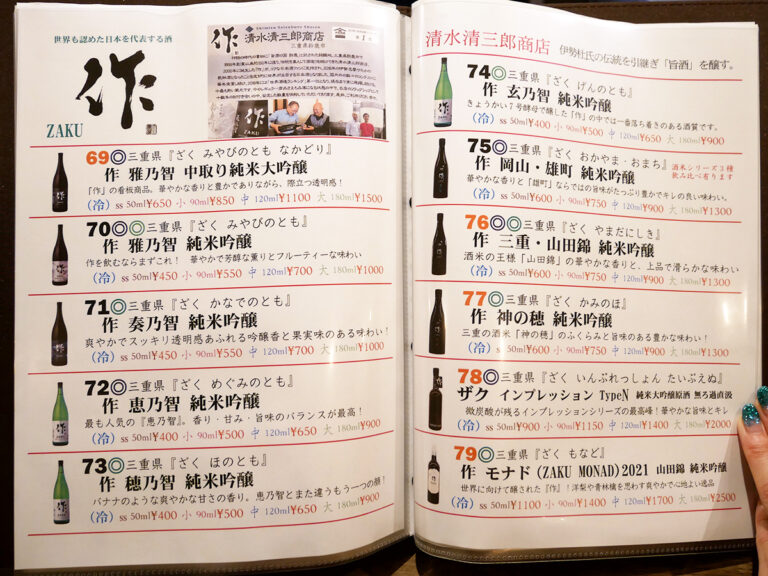 世界も認めた日本を代表する酒
作
ZAKU
作
清水清三郎商店
三重県鈴鹿市
69◎三重県『ざく みやびのとも なかどり』
作 雅乃智 中取り 純米大吟醸
「作」の看板商品。華やかな香りと豊かでありながら、際立つ透明感!
(冷) ss 50ml¥650 小 90ml¥850 中 120ml¥1100 大 180ml¥1500
70◎◎三重県『ざく みやびのとも』
作 雅乃智 純米吟醸
作を飲むならまずこれ! 華やかで芳醇な薫りとフルーティーな味わい
(冷) ss 50ml¥450 小 90ml¥550 中 120ml¥700 大 180ml¥1000
71◎三重県『ざく かなでのとも』
作 奏乃智 純米吟醸
爽やかでスッキリ透明感あふれる吟醸香と果実味のある味わい!
(冷) ss 50ml¥450 小 90ml¥550 中 120ml¥700 大 180ml¥1000
72◎三重県『ざく めぐみのとも』
作 恵乃智 純米吟醸
最も人気の『恵乃智』。香り・甘み・旨味のバランスが最高!
(冷) ss 50ml¥400 小 90ml¥500 中 120ml¥650 大 180ml¥900
73◎三重県『ざく ほのとも』
作 穂乃智 純米吟醸
バナナのような爽やかな甘さの香り。恵乃智とまた違うもう一つの顔!
(冷) ss 50ml¥400 小 90ml¥500 中 120ml¥650 大 180ml¥900
清水清三郎商店 伊勢杜氏の伝統を引継ぎ「旨酒」を醸す。
74◎三重県『ざく げんのとも』
作 玄乃智 純米吟醸
きょうかい7号酵母で醸した「作」の中では一番落ち着きのある酒質です。
(冷) ss 50ml¥400 小 90ml¥500 中 120ml¥650 大 180ml¥900
75◎三重県『ざく おかやま・おまち』
作 岡山・雄町 純米吟醸
酒米シリーズ3種
飲み比べ有ります
華やかな香りと「雄町」ならではの旨味がたっぷり豊かでキレの良い味わい。
(冷) ss 50ml¥600 小 90ml¥750 中 120ml¥900 大 180ml¥1300
76◎◎三重県『ざく やまだにしき』
作 三重・山田錦 純米吟醸
酒米の王様「山田錦」の華やかな香りと、上品で滑らかな味わい
(冷) ss 50ml¥600 小 90ml¥750 中 120ml¥900 大 180ml¥1300
77◎三重県『ざく かみのほ』
作 神の穂 純米吟醸
三重の酒米「神の穂」のふくらみと旨味のある豊かな味わい!
(冷) ss 50ml¥600 小 90ml¥750 中 120ml¥900 大 180ml¥1300
78◎三重県『ざく いんぷれっしょん たいぷえぬ』
ザク インプレッション TypeN 純米大吟醸原酒 無ろ過直汲
微炭酸が残るインプレッションシリーズの最高峰!華やかな旨味とキレ
(冷) ss 50ml¥900 小 90ml¥1150 中 120ml¥1400 大 180ml¥2000
79◎三重県『ざく もなど』
作 モナド (ZAKU MONAD) 2021 山田錦 純米吟醸
世界に向けて醸された『作』!洋梨や青林檎を思わす爽やかで心地よい逸品
(冷) ss 50ml¥1100 小 90ml¥1400 中 120ml¥1700 大 180ml¥2500